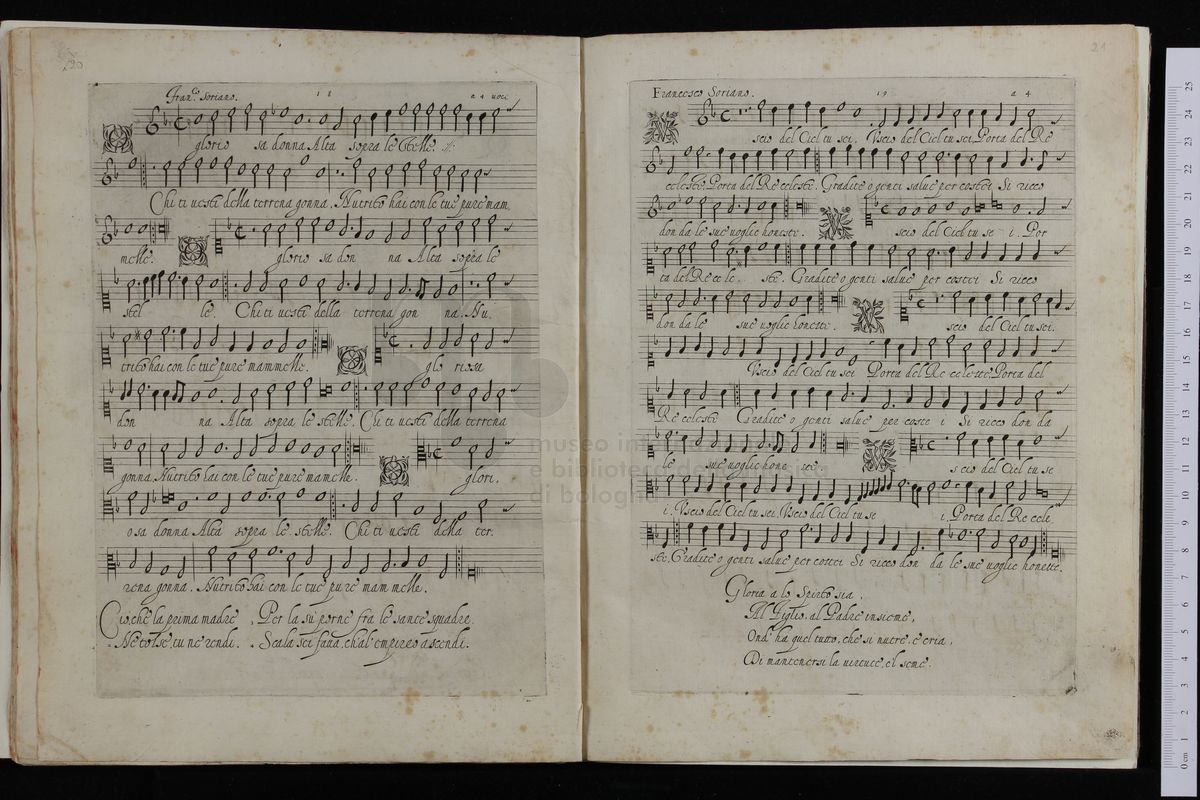 20
Fran.co Soriano. 18 a 4 uoci
O glorio sa donna Alta sopra le Stelle. ij
Chi ti uesti della terrena gonna. Nutrito hai con le tue pure mam
melle. O glorio sa don na Alta sopra le
stel le. Chi ti uesti della terrena gon na. Nu.
trito hai con le tue pure mammelle. O glo riosa
don na Alta sopra le stelle. Chi ti uesti della terrena
gonna. Nutrito hai con le tue pure mamelle. O glori.
osa donna Alta sopra le stelle. Chi ti uesti della ter.
rena gonna. Nutrito hai con le tue pure mam melle.
Ciò, che la prima madre, Per la sù porne fra le sante squadre.
Ne tolse tu ne rendi. Scala sei fatta, ch'al'empireo ascendi.
21
Francesco Soriano. 19 a 4
V scio del Ciel tu sei. Vscio del Ciel tu sei. Porta del Rè
celeste. Porta del Rè celeste. Gradite o genti salue per costei Si ricco
don da le sue uoglie honeste. V scio del Ciel tu se i. Por
ta del Rè ce le. ste. Gradite o genti salue per costei Si ricco
don da le sue uoglie honeste. V scio del Ciel tu sei.
Vscio del Ciel tu sei Porta del Rè celeste. Porta del
Rè celeste Gradite o genti salue per coste i Si ricco don da
le sue uoglie hone ste. V scio del Ciel tu se
i. Vscio del Ciel tu sei. Vscio del Ciel tu se i. Porta del Rè cele.
ste. Gradite o genti salue per costei Si ricco don da le sue uoglie honeste.
Gloria a lo Spirto sia.
Al Figlio, al Padre insieme,
Ond' ha quel tutto, che si nutre, e cria,
Di mantenersi la uirtute, e'l seme.
museo in
e bibliotec
di bologn